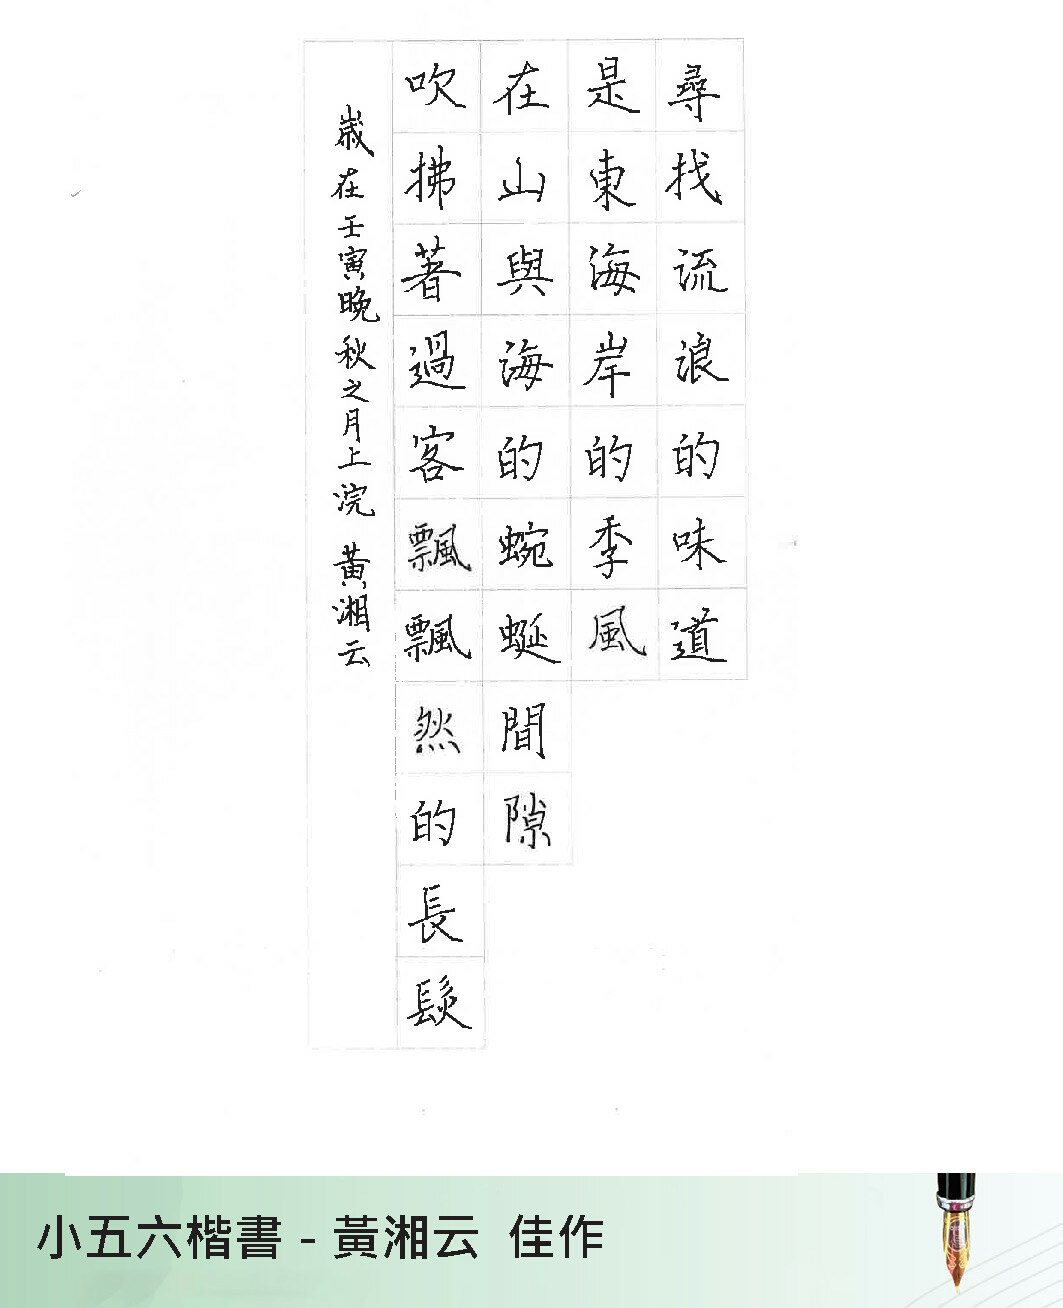 尋找流浪的味道
是東海岸的季風
在山與海的蜿蜒間隙
吹拂著過客飄飄然的長髮
歲在壬寅晚秋之月上浣 黃湘云
小五六楷書 - 黃湘云 佳作